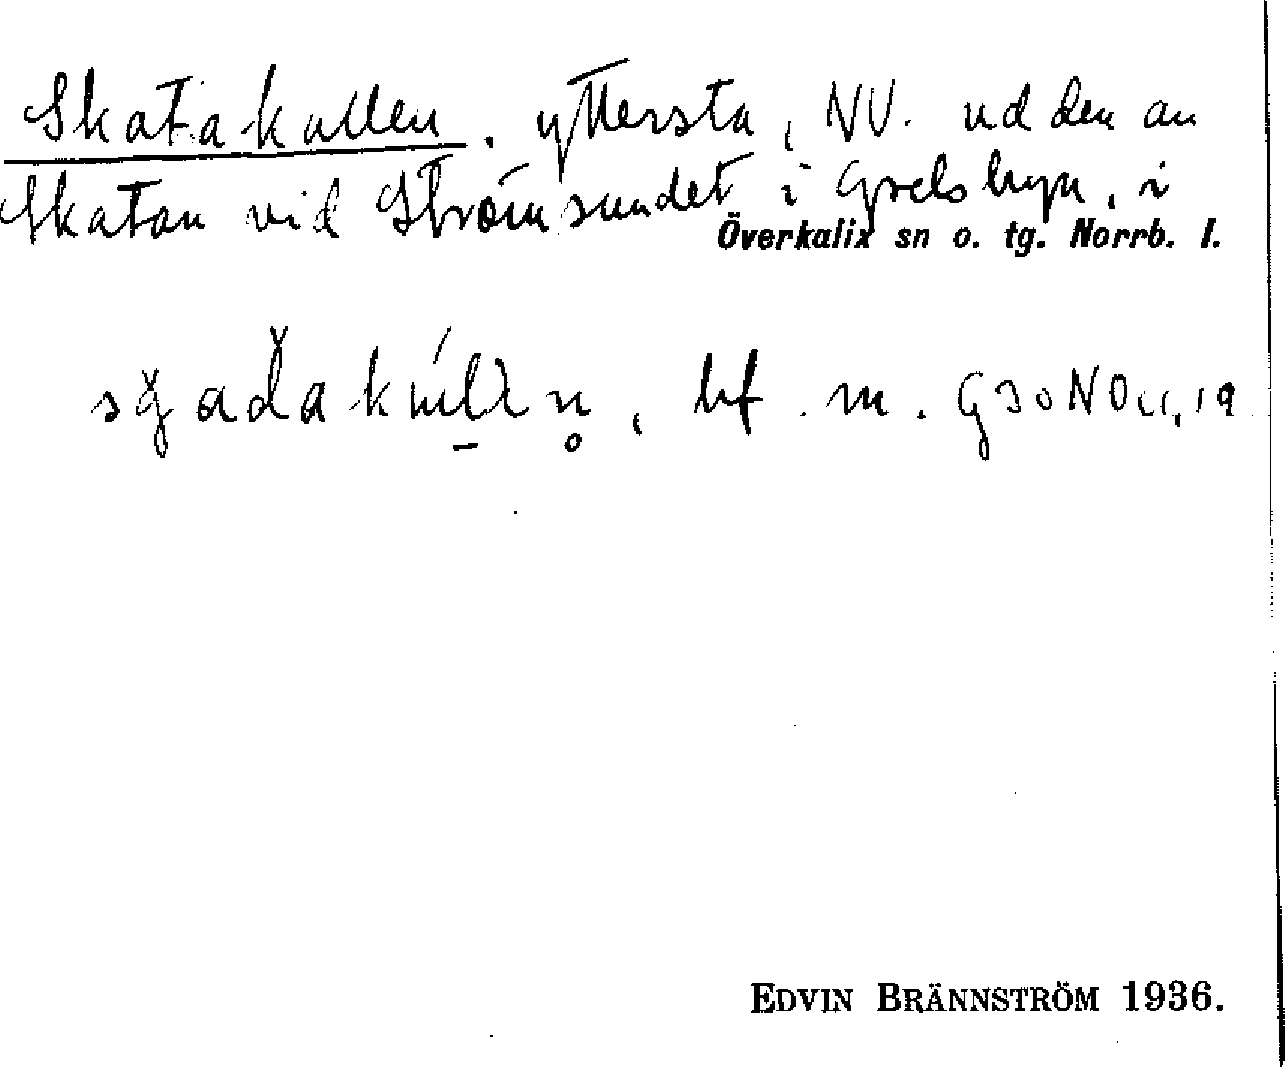 Skatakallen, yttersta, NV. udden an
Skatan vid Strömsundet i Gyselsbyn, i
Överkalix sn o. tg. Norrb. l.
bf. m.
EDVIN BRÄNNSTRÖM 1936.